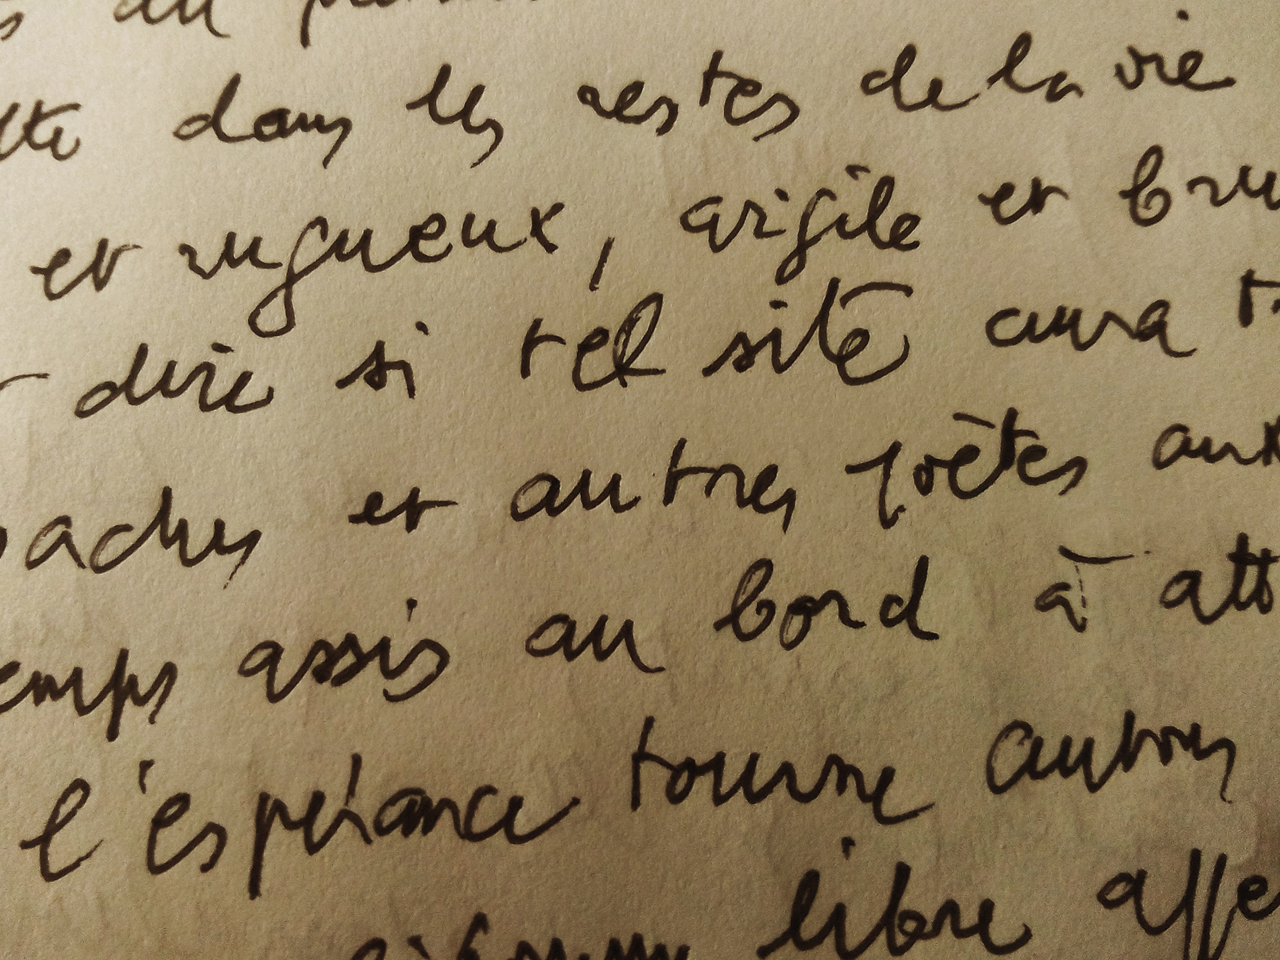 au
dans les restes de la vie
et rugueux, argile et bru
dire si tel site aura t
aches et autres poètes aux
emps assis au bord à att
l'espérance tourne autour
libre affe